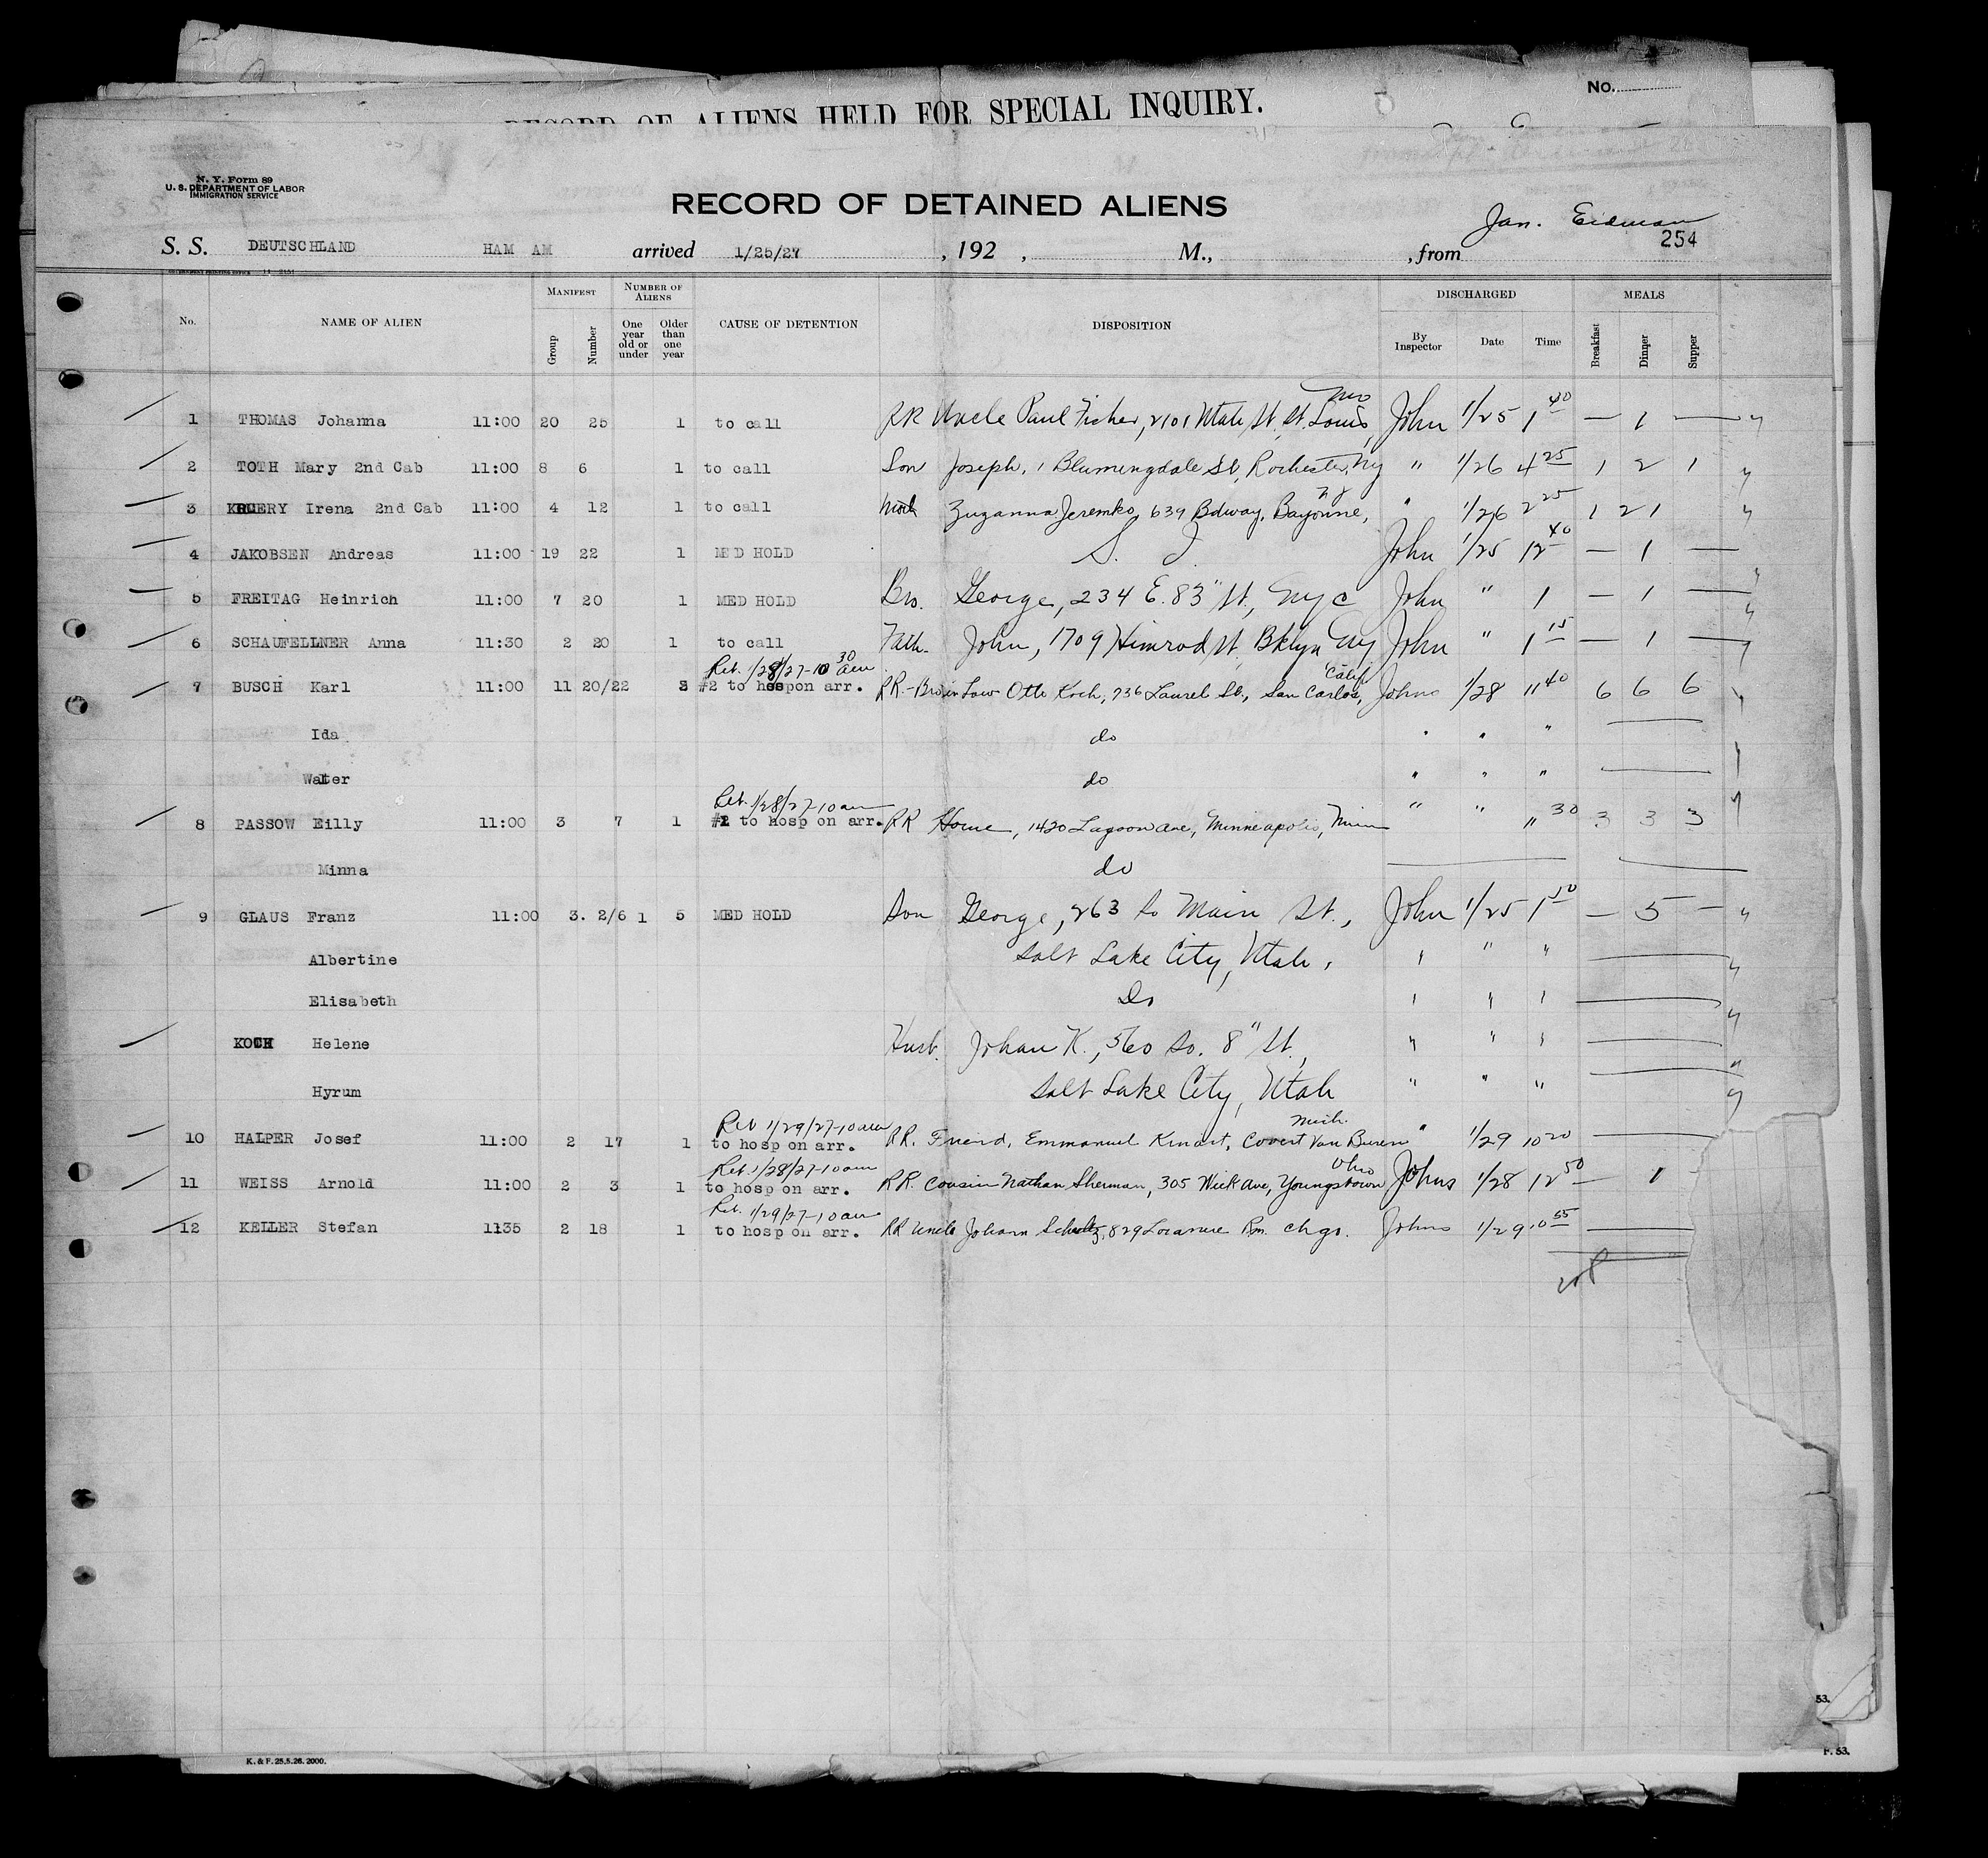 RECORD OF ALIENS HELD FOR SPECIAL INQUIRY.
No.
N. Y. Form 89
U. S. DEPARTMENT OF LABOR
IMMIGRATION SERVICE
RECORD OF DETAINED ALIENS
Jan. Eidman
254
S. S. DEUTSCHLAND HAM AM arrived 1/25/27, 192 , M., , from
No. NAME OF ALIEN MANIFEST Group Number NUMBER OF ALIENS One year old or under Older than one year CAUSE OF DETENTION DISPOSITION DISCHARGED By Inspector Date Time MEALS Breakfast Dinner Supper
1 THOMAS Johanna 11:00 20 25 1 to call RR Uncle Paul Ficher, 2101 Utah St. St. Louis, Mo John 1/25 1 40 — 1 —
2 TOTH Mary 2nd Cab 11:00 8 6 1 to call Son Joseph, 1 Blumingdale St, Rochester, NY " 1/26 4 25 1 2 1
3 Irena 2nd Cab 11:00 4 12 1 to call Zuzanna Jeremko, 639 Bdway, Bayonne, NJ " 1/26 2 25 1 2 1
4 JAKOBSEN Andreas 11:00 19 22 1 MED HOLD S. I. John 1/25 12 40 — 1 —
5 FREITAG Heinrich 11:00 7 20 1 MED HOLD Bro. George, 234 E. 83" St., NYC John " 1 — 1 —
6 SCHAUFELLNER Anna 11:30 2 20 1 to call Fath. John, 1709 Himrod St, Bklyn NY John " 1 15 — 1 —
Ret. 1/28/27-10 30 am
7 BUSCH Karl 11:00 11 20/22 3 #2 to hospon arr. RR-Bro in Law Otto Koch, 736 Laurel St., San Carlos, Calif Johns 1/28 11 40 6 6 6
Ida do " " "
Walter do " " "
Ret. 1/28/27-10am
8 PASSOW Eilly 11:00 3 7 1 #1 to hosp on arr. RR Home, 1420 Lagoon Ave, Minneapolis, Minn " " " 30 3 3 3
Minna do
9 GLAUS Franz 11:00 3. 2/6 1 5 MED HOLD Son George, 263 So Main St., John 1/25 1 50 — 5 —
Albertine Salt Lake City, Utah, " " "
Elisabeth Do " " "
KOCH Helene Husb. Johan K., 560 So. 8" St., " " "
Hyrum Salt Lake City, Utah " " "
Ret 1/29/27-10am
10 HALPER Josef 11:00 2 17 1 to hosp on arr. RR. Friend, Emmanuel Kindrt, Covert Van Buren Mich. " 1/29 10 20
Ret. 1/28/27-10am
11 WEISS Arnold 11:00 2 3 1 to hosp on arr. RR. Cousin Nathan Sherman, 305 Wick Ave, Youngstown Ohio Johns 1/28 12 50 — 1
Ret. 1/29/27-10am
12 KELLER Stefan 1135 2 18 1 to hosp on arr. RR Uncle Johann Schultz, 829 Chgo. Johns 1/29 10 55
53.
F. 53.
K. & F. 25.5.26. 2000.